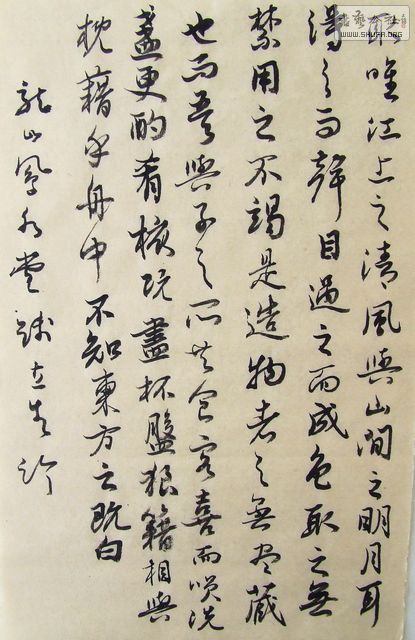 WWW.SHUFA.ORG
取唯江上之清風與山間之明月耳
得之而聲目遇之而成色取之無
禁用之不竭是造物者之無尽藏
也而吾與子之所共食客喜而咲洗
盞更酌肴核既盡杯盤狼籍相與
枕藉乎舟中不知東方之既白
龍山鳳水堂